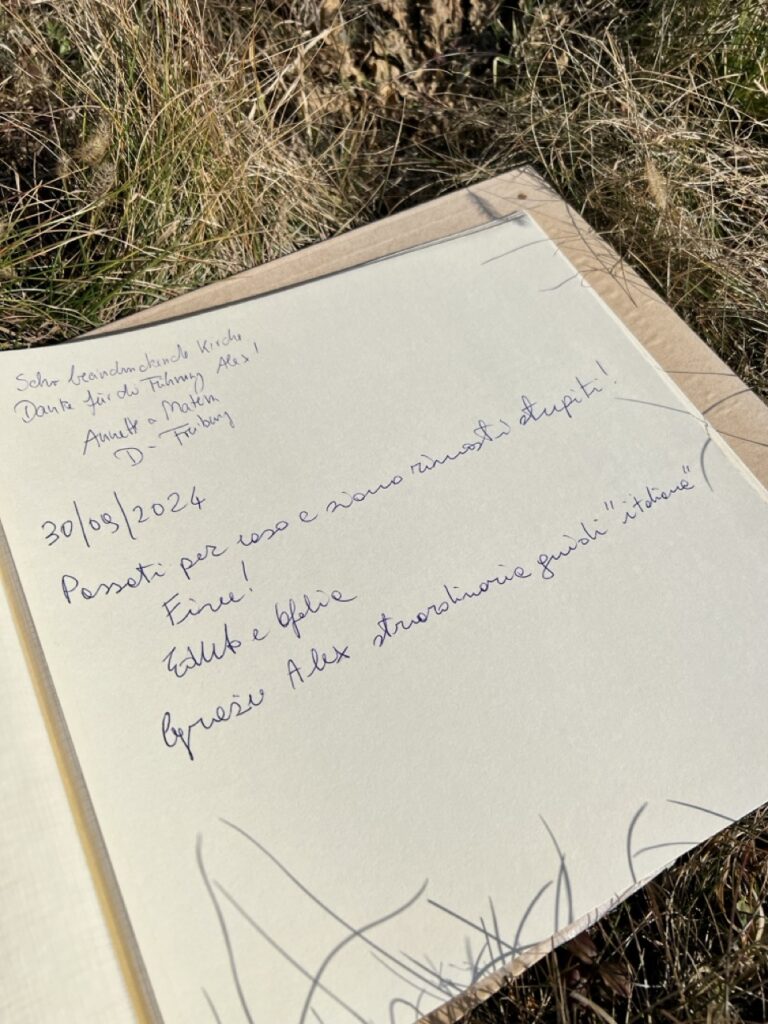 Sehr beeindruckende Kirche
Danke für die Führung Alex!
Annett + Matern
D - Freiburg
30/09/2024
Passati per caso e siamo rimasti stupiti!
e Ofelia
Grazie Alex straordinaria guida "italiana"